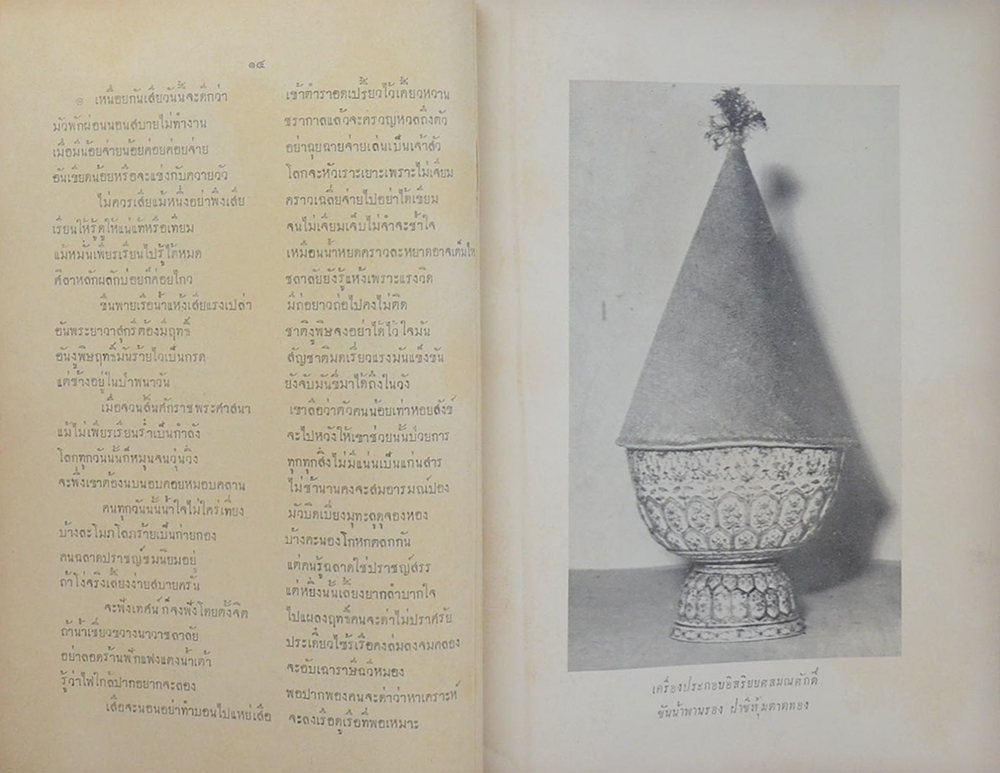 ๑๔
๏ เหนื่อยกันเสียวันนี้จะดีกว่า เข้าตำราอดเปรี้ยวไว้เคี้ยวหวาน
มัวพักผ่อนนอนสบายไม่ทำงาน ชรากาลแล้วจะครวญหวลถึงตัว
เมื่อมีน้อยจ่ายน้อยค่อยค่อยจ่าย อย่าฉุยฉายจ่ายเล่นเป็นเจ้าสัว
อันเขียดน้อยหรือจะแข่งกับควายวัว โลกจะหัวเราะเยาะเพราะไม่เจียม
ไม่ควรเสียแม้หนึ่งอย่าพึงเสีย คราวเฉลี่ยจ่ายไปอย่าได้เขียม
เรียนให้รู้ดูให้แน่แท้หรือเทียม จนไม่เจียมเจ็บไม่จำจะช้ำใจ
แม้หมั่นเพียรเรียนไปรู้ได้หมด เหมือนน้ำหยดคราวละหยาดอาจเต็ม
ศิลาหลักผลักบ่อยก็ค่อยไกว ชลาลัยยังรู้แห้งเพราะแรงวิด
ขืนพายเรือน้ำแห้งเสียแรงเปล่า มีถ่อยาวถ่อไปคงไม่ติด
อันพระยาวาสุกรีต้องมีฤทธิ์ ชาติงูพิษจงอย่าได้ไว้ใจมัน
อันงูพิษฤทธิ์มันร้ายไวเป็นกรด สัญชาติมดเรี่ยวแรงมันแข็งขัน
แต่ช้างอยู่ในป่าพนาวัน ยังจับมันขี่มาได้ถึงในวัง
เมื่อจวนสิ้นศักราชพระศาสนา เขาถือว่าตัวคนน้อยเท่าหอยสังข์
แม้ไม่เพียรเรียนร่ำเป็นกำลัง จะไปหวังให้เขาช่วยนั้นป่วยการ
โลกทุกวันนั้นก็หมุนจนวุ่นวิ่ง ทุกทุกสิ่งไม่มีแน่นเป็นแก่นสาร
จะพึ่งเขาต้องนบนอบคอยหมอบคลาน ไม่ช้านานคงจะสมอารมณ์ปอง
คนทุกวันนั้นน้ำใจไม่ใคร่เที่ยง มัวบิดเบี่ยงมุทะลุดุจองหอง
บ้างละโมภโลภร้ายเป็นก่ายกอง บ้างคะนองโกหกตลกกัน
คนฉลาดปราชญ์ชมนิยมอยู่ แต่คนรู้ฉลาดใช่ปราชญ์สรร
ถ้าโง่จริงเลี้ยงง่ายสบายครัน แต่หยิ่งนั้นเลี้ยงยากลำบากใจ
จะฟังเทศน์ก็จงฟังโดยตั้งจิต ไปแผลงฤทธิ์คนจะด่าไม่ปราศรัย
ถ้าน้ำเชี่ยวขวางนาวาชลาลัย ประเดี๋ยวใจรั้วเรือคงล่มลงจมคลอง
อย่าลอดร้านฟักแฟงแตงน้ำเต้า จะอับเฉาราษีฉวีหมอง
รู้ว่าไฟใกล้ปากอยากจะลอง พอปากพองคนจะด่าว่าหาเคราะห์
เสือจะนอนอย่าทำบอนไปแหย่เสือ จะลงเรือดูเรือที่พอเหมาะ
เครื่องประกอบอิสริยยศสมณศักดิ์
ขันน้ำพานรอง ฝาชีหุ้มตาดทอง